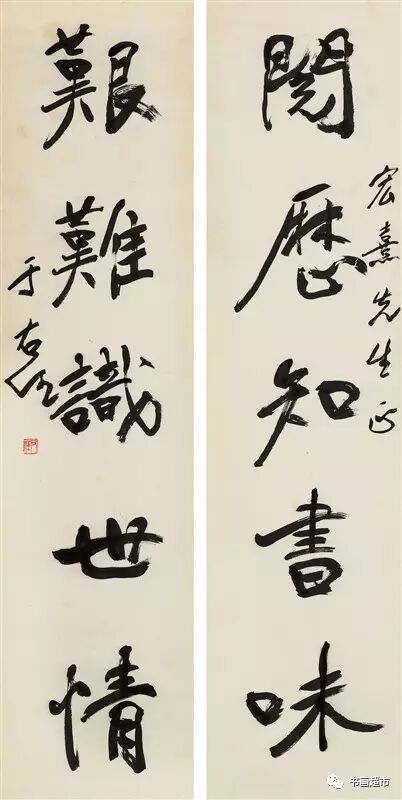 閱歷知書味
宏熹先生正
艱難識世情
于右任
书画超市